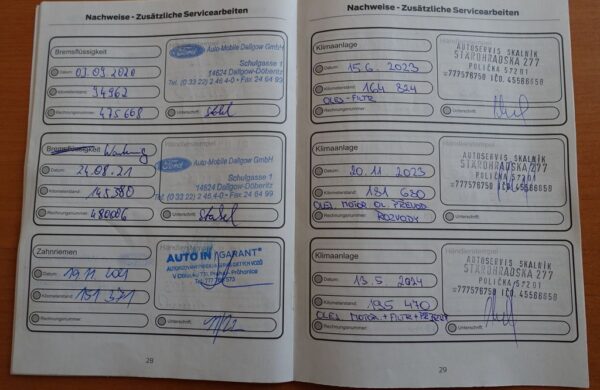 Nachweise - Zusätzliche Servicearbeiten
Bremsflüssigkeit
Datum: 03.09.2020
Kilometerstand: 94962
Rechnungsnummer: 475668
Ford
Auto-Mobile Dallgow GmbH
Schulgasse 1
14624 Dallgow-Döberitz
Tel. (0 33 22) 2 46 4-0 • Fax 24 64 99
Unterschrift:
Bremsflüssigkeit Wartung
Datum: 24.08.21
Kilometerstand: 145380
Rechnungsnummer: 480006
Händlerstempel
Ford
Auto-Mobile Dallgow GmbH
Schulgasse 1
14624 Dallgow-Döberitz
Tel. (0 33 22) 2 46 4-0 • Fax 24 64 99
Unterschrift:
Zahnriemen
Datum:
Kilometerstand: 151 371
Rechnungsnummer:
Händlerstempel
AUTO IN GARANT
Unterschrift:
28
Nachweise - Zusätzliche Servicearbeiten
Klimaanlage
Datum: 15.6 2023
Kilometerstand: 164 824
OLEJ - FILTR
Rechnungsnummer:
Händlerstempel
AUTOSERVIS SKALNÍK
STAROHRADSKA 277
POLIČKA 57201
Unterschrift:
Klimaanlage
Datum: 20.11 2023
Kilometerstand: 181 630
OLEJ MOTOR OL. PŘEVOD
Rechnungsnummer: ROZVODY
Händlerstempel
AUTOSERVIS SKALNÍK
STAROHRADSKA 277
POLIČKA 57201
Unterschrift:
Klimaanlage
Datum: 13.5 2024
Kilometerstand: 195 470
OLEJ MOTOR + FILTR +
Rechnungsnummer:
Händlerstempel
AUTOSERVIS SKALNÍK
STAROHRADSKA 277
POLIČKA 57201
Unterschrift:
29